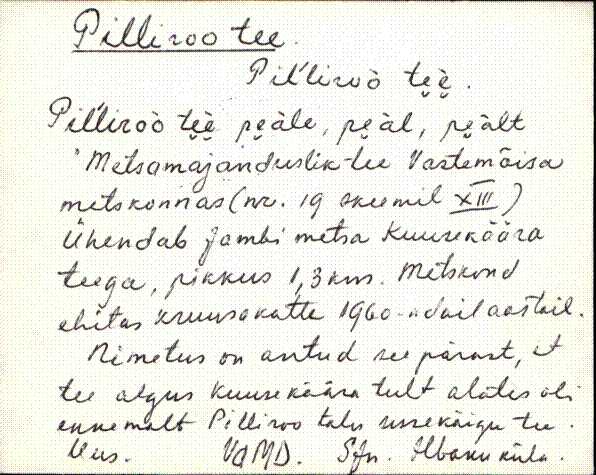 Pilliroo tee.
Pil'liroò te̮è̮.
Pil'liroò te̮è̮ pe̮àle, pe̮àl, pe̮àlt
Metsamajanduslik tee Vastemõisa
metskonnas (nr. 19 skeemil XIII)
Ühendab Jambi metsa Kuusekäära
teega, pikkus 1,3 km. Metskond
ehitas kruusakatte 1960-ndail aastail.
Nimetus on antud seepärast, et
tee algus Kuusekäära tult alates oli
ennemalt Pilliroo talu sissekäigu tee
Uus. VdMD. Sjn.